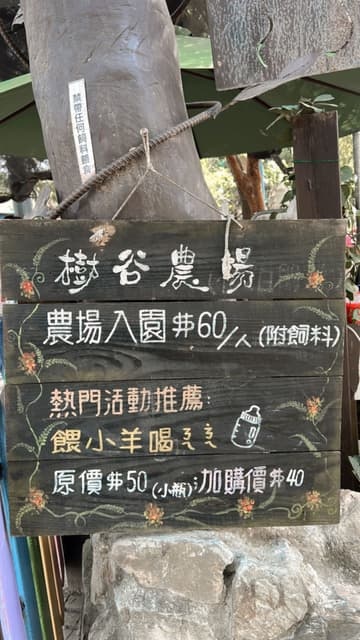 禁帶任何飼料餵食
樹谷農場
農場入園$60/人(附飼料)
熱門活動推薦:
餵小羊喝ㄋㄟㄋㄟ
原價$50(小瓶);加購價$40